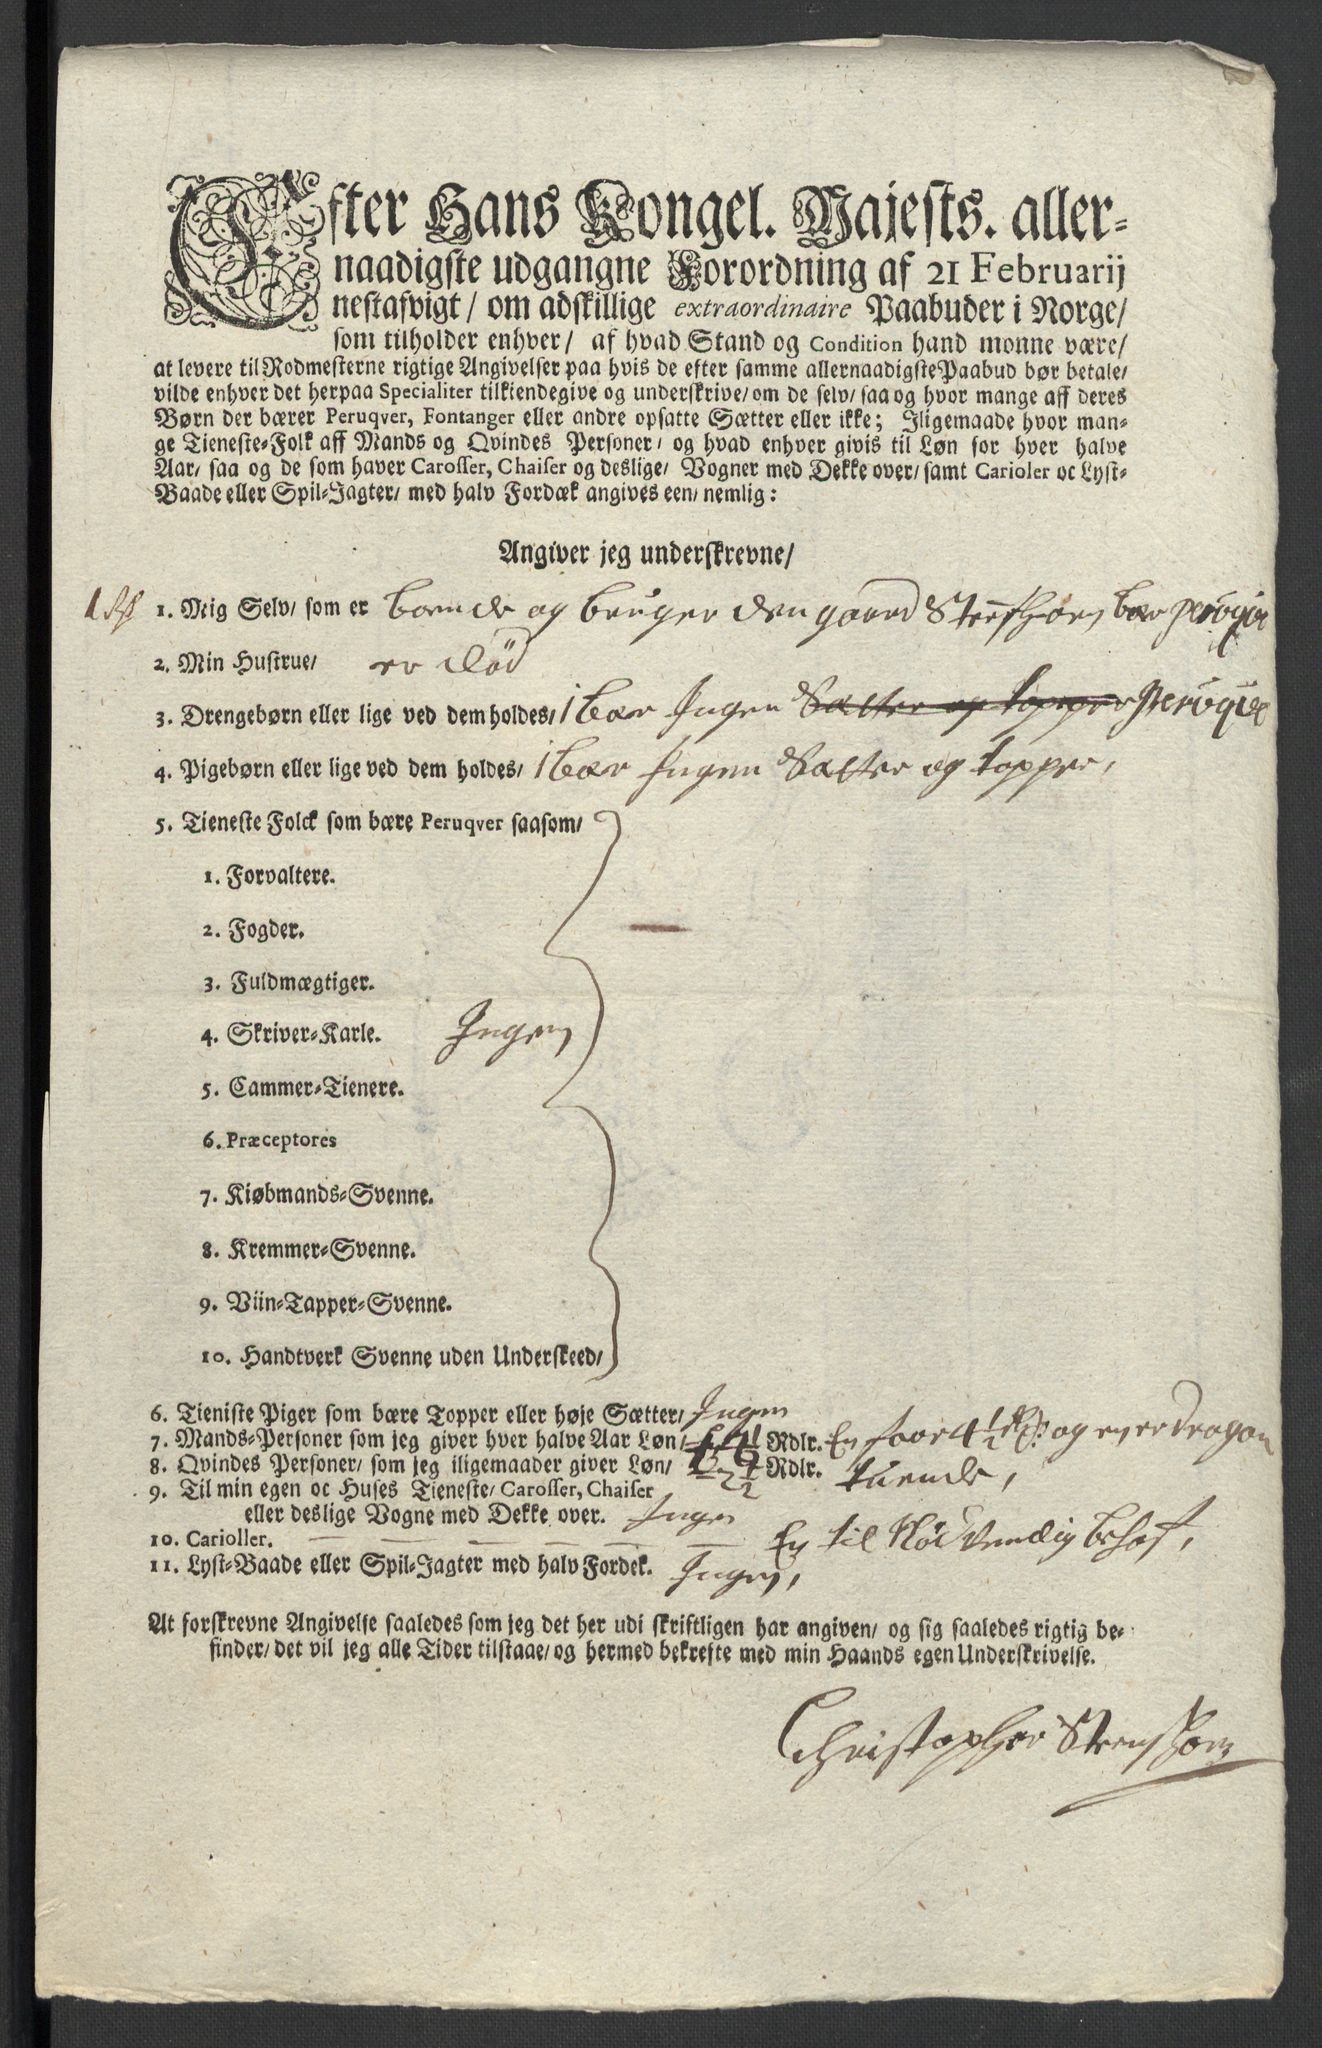 Efter Hans Kongel. Majests. aller-
naadigste udgangne Forordning af 21 Februarij
nestafvigt/ om adskillige extraordinaire Paabuder i Norge/
som tilholder enhver/ af hvad Stand og Condition hand monne være/
at levere til Rodmesterne rigtige Angivelser paa hvis de efter samme allernaadigste Paabud bør betale/
vilde enhver det herpaa Specialiter tilkiendegive og underskrive/ om de selv/ saa og hvor mange aff deres
Børn der bærer Peruqver, Fontanger eller andre opsatte Sætter eller ikke; Iligemaade hvor man-
ge Tieneste-Folk aff Mands og Qvindes Personer/ og hvad enhver givis til Løn for hver halve
Aar/ saa og de som haver Carosser, Chaiser og deslige/ Vogner med Dekke over/ samt Carioler oc Lyst-
Baade eller Spil-Jagter/ med halv Fordæk angives een/ nemlig:
Angiver jeg underskrevne/
1. Mig Selv/ som er boende og bruger den gaard bær peruque
2. Min Hustrue/ er død
3. Drengebørn eller lige ved dem holdes/ 1 bær Ingen Sætter og topper Peruque
4. Pigebørn eller lige ved dem holdes/ 1 bær Ingen Sætter og topper,
5. Tieneste Folck som bære Peruqver saasom/
1. Forvaltere.
2. Fogder.
3. Fuldmægtiger.
4. Skriver-Karle. Ingen
5. Cammer-Tienere.
6. Præceptores
7. Kiøbmands-Svenne.
8. Kremmer-Svenne.
9. Viin-Tapper-Svenne.
10. Handtverk Svenne uden Underskeed/
6. Tieniste Piger som bære Topper eller høje Sætter/ Ingen
7. Mands-Personer som jeg giver hver halve Aar Løn/ Rdlr. En faar 4 1/2 Rdr og en er dragon
8. Qvindes Personer/ som jeg iligemaader giver Løn/ Rdlr. tuende,
9. Til min egen oc Huses Tieneste/ Carosser, Chaiser
eller deslige Vogne med Dekke over. Ingen
10. Carioller. En til Nødvendig behof,
11. Lyst-Baade eller Spil-Jagter med halv Fordek. Ingen,
At forskrevne Angivelse saaledes som jeg det her udi skriftligen har angiven/ og sig saaledes rigtig be-
finder/ det vil jeg alle Tider tilstaae/ og hermed bekrefte med min Haands egen Underskrivelse.
Christopher